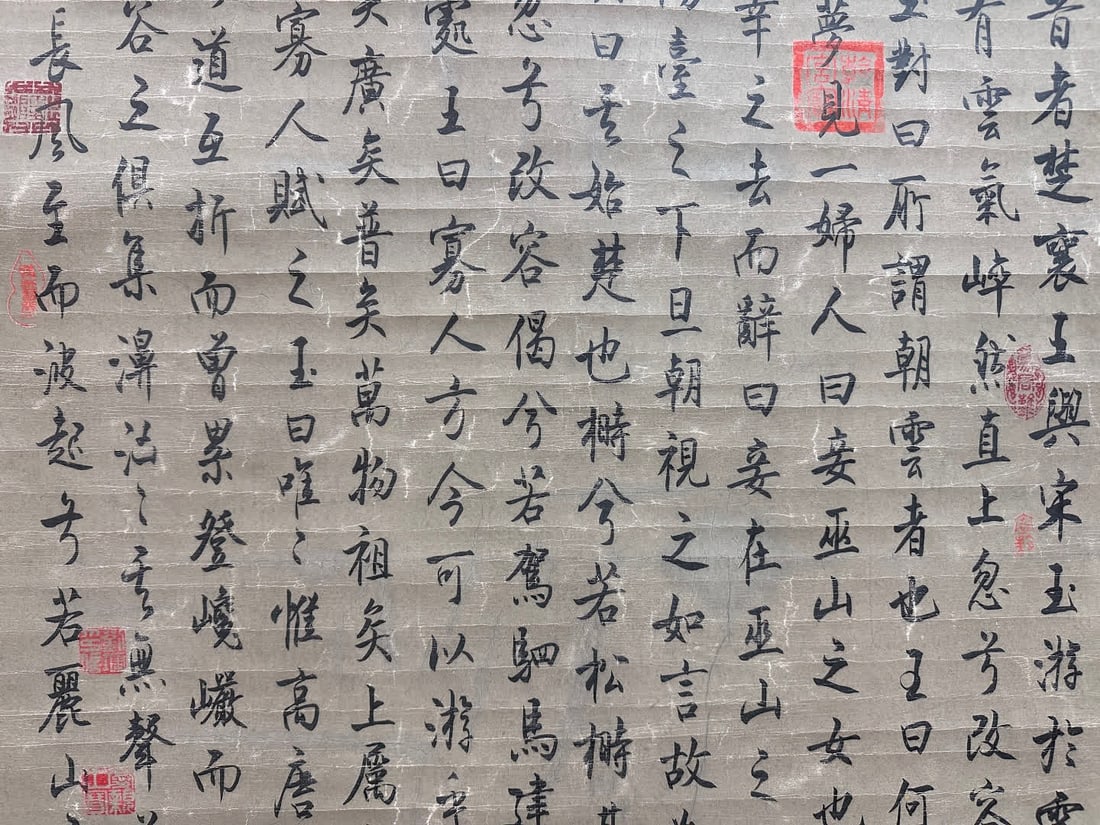 昔者楚襄王與宋玉游於雲
有雲氣崪然直上忽兮改容
玉對曰所謂朝雲者也王曰何
夢見一婦人曰妾巫山之女也
幸之去而辭曰妾在巫山之
陽臺之下旦朝視之如言故
曰其始楚也榯兮若松榯其
忽兮改容偈兮若駕駟馬建
處王曰寡人方今可以游乎
矣廣矣普矣萬物祖矣上屬
寡人賦之玉曰唯〻惟高唐
道互折而曾累登巉巖而
谷之俱集濞洶〻其無聲
長風至而波起兮若麗山